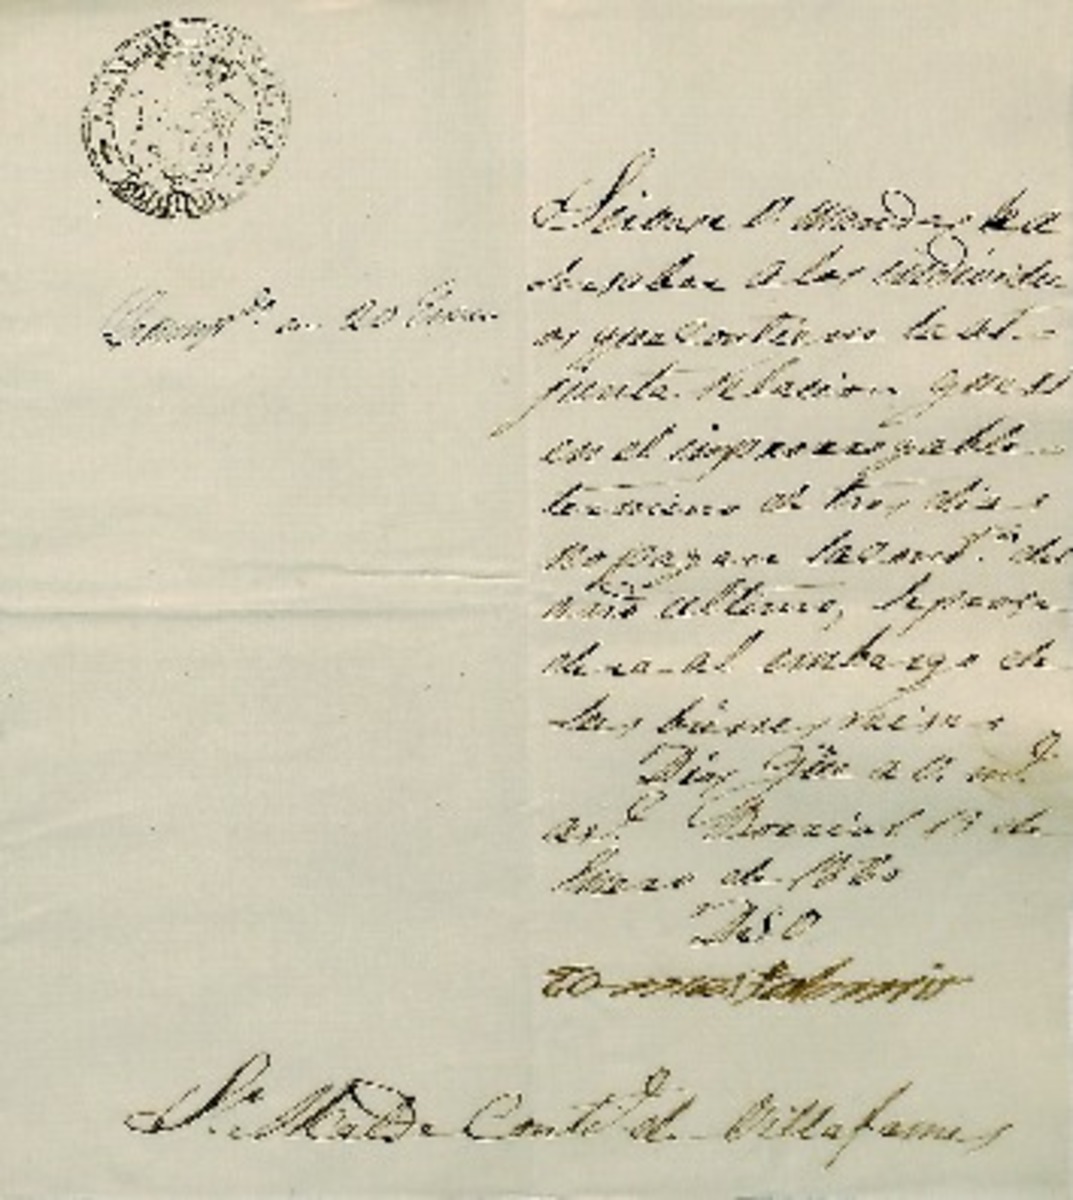 Cump.do en 20 Enero
Sirvase V. mandar ha
cer saber a los individu
os que contiene la ad-
junta relacion que si
en el improrrogable
termino de tres dias
no pagan la cont.n del
año ultimo, se proce-
dera al embargo de
sus bienes raises
Dios gũe a V. m.s
a.s Borriol 17 de
Enero de 1880
D S O
Sr. Alcalde Constl. de Villafames